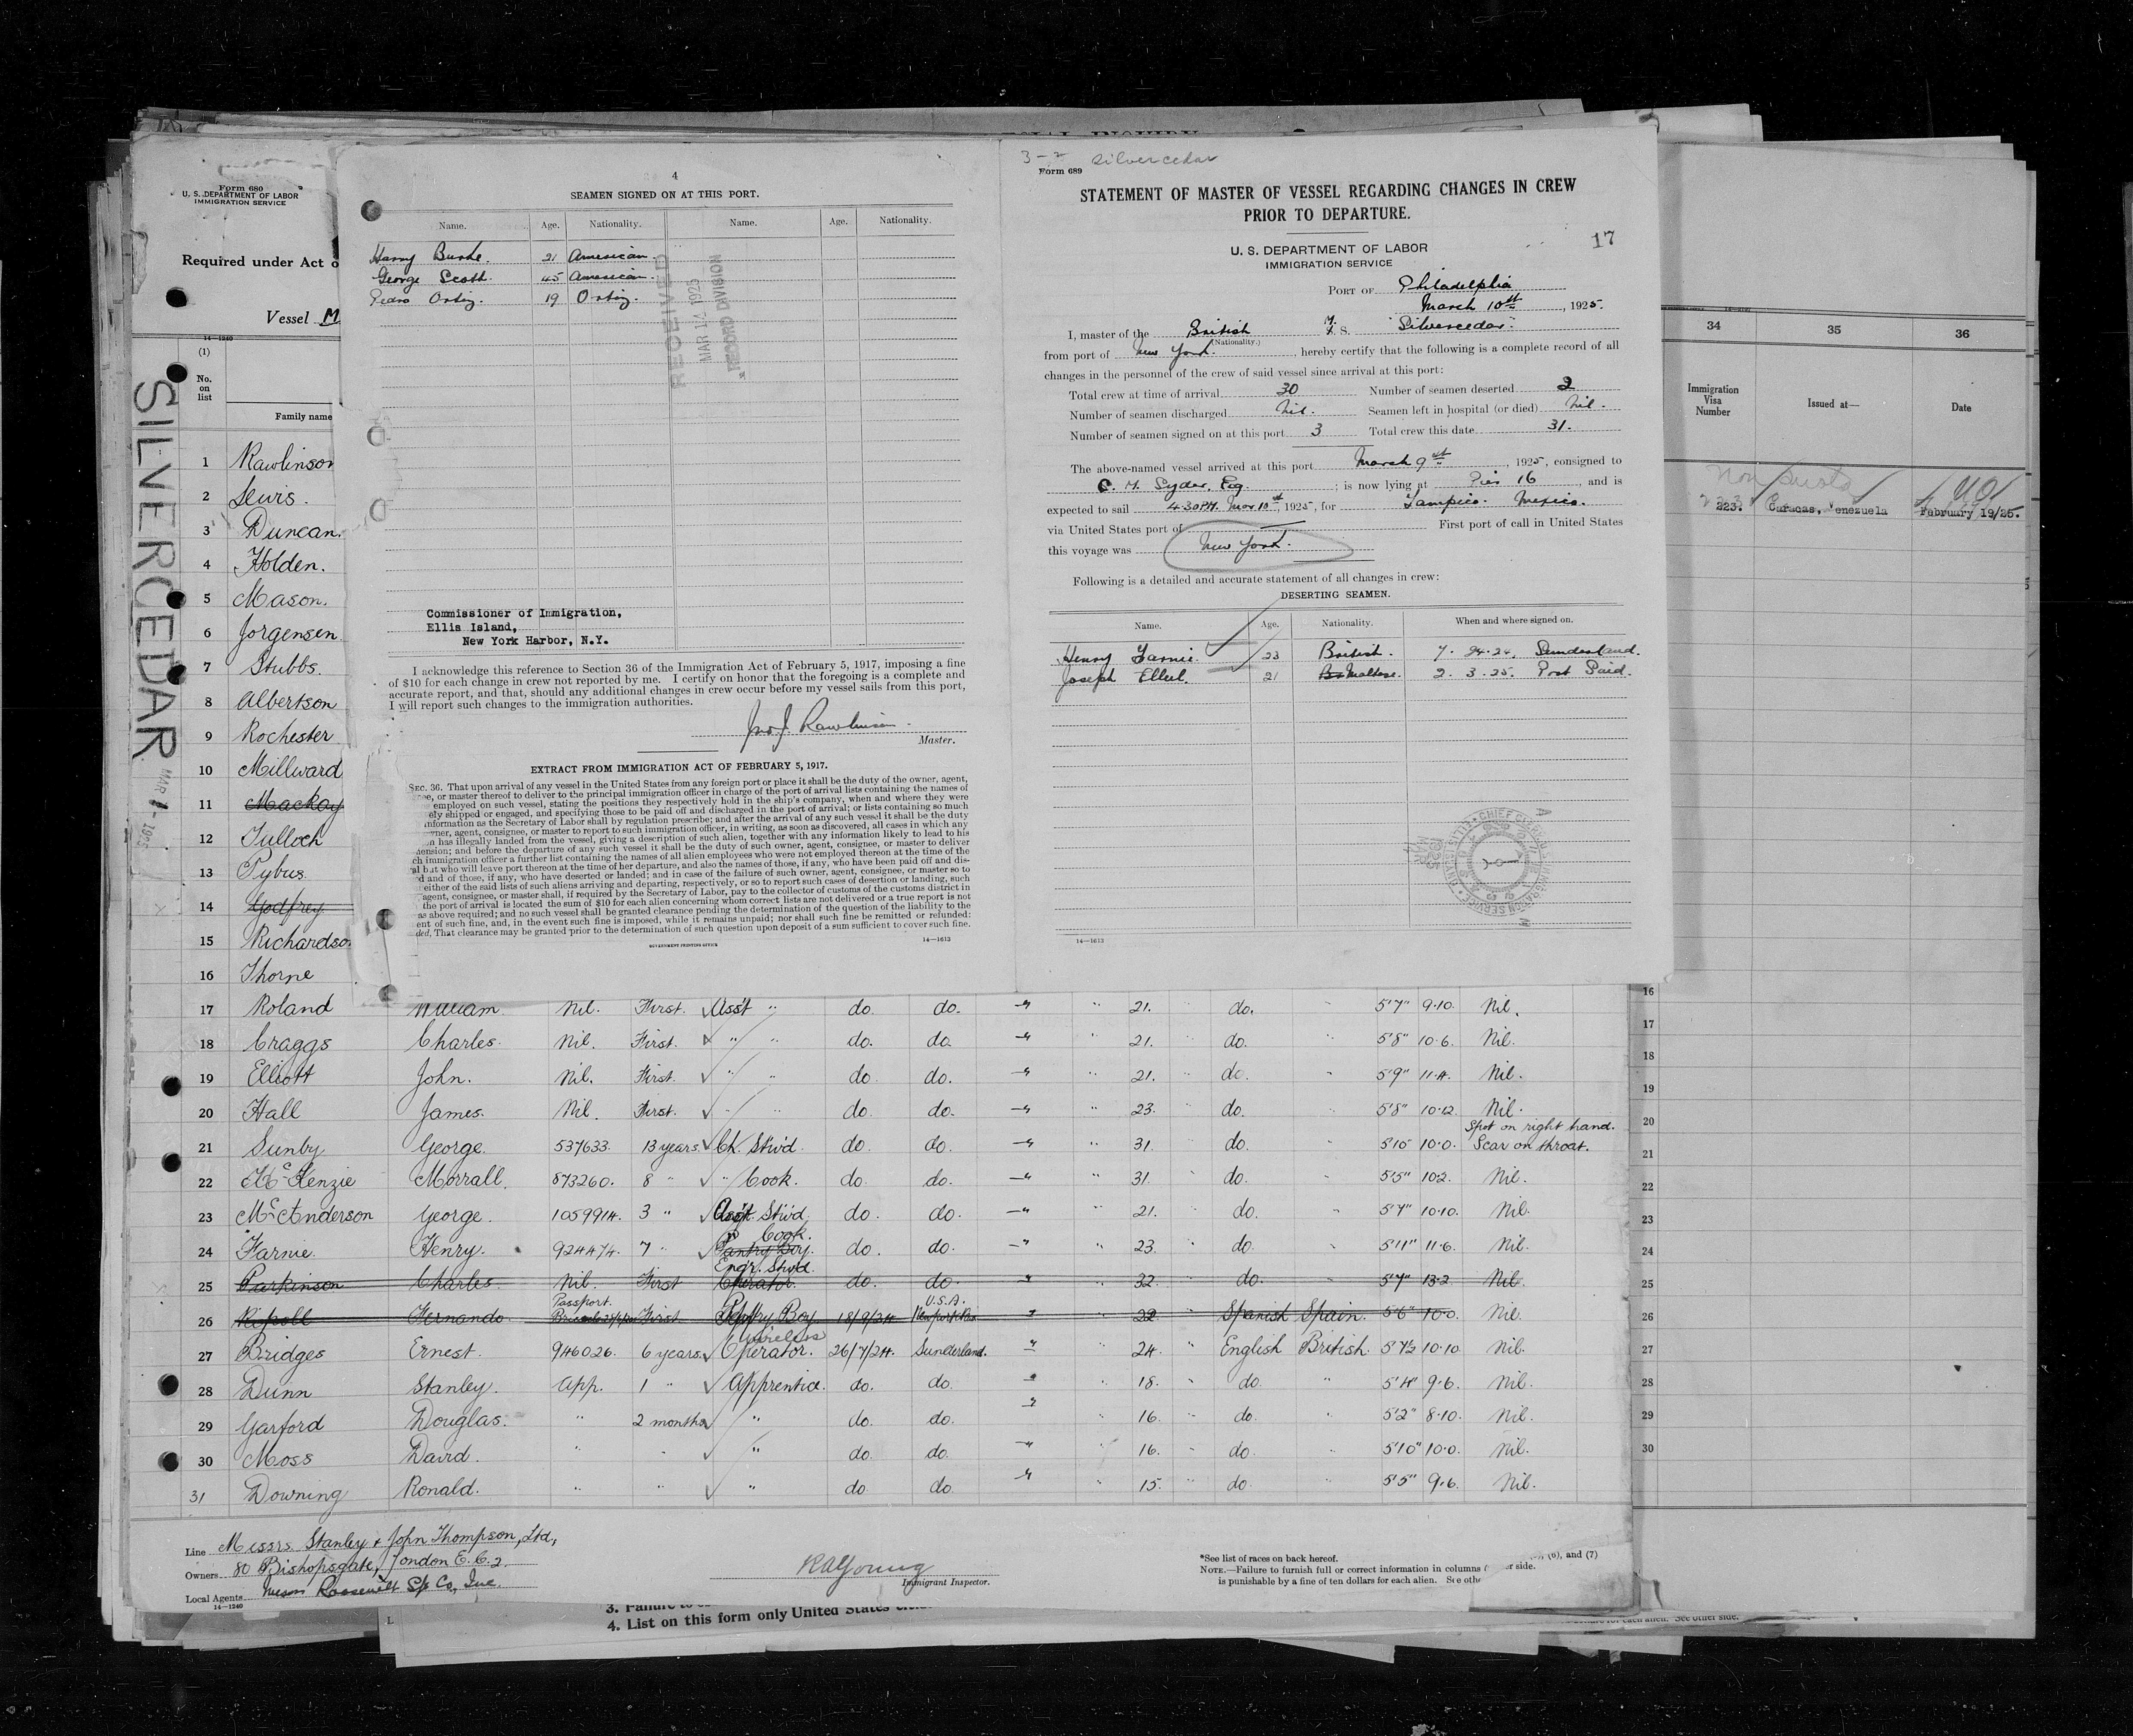 Form 680
U. S. DEPARTMENT OF LABOR
IMMIGRATION SERVICE
Required under Act o
Vessel M
14—1240
(1)
No. on list
Family name
SILVERCEDAR
1 Rawlinson
2 Lewis.
3 Duncan.
4 Holden.
5 Mason.
6 Jorgensen
7 Stubbs.
8 Albertson
9 Rochester
10 Millward
11 Mackay
12 Tulloch
13 Pybus
14 Godfrey
15 Richardso
16 Thorne
4
SEAMEN SIGNED ON AT THIS PORT.
Name. Age. Nationality. Name. Age. Nationality.
Harry Burke 21 American
George Scott 45 American
Pedro Ortiz. 19 Ortiz.
RECEIVED
MAR 14 1925
RECORD DIVISION
Commissioner of Immigration,
Ellis Island,
New York Harbor, N.Y.
I acknowledge this reference to Section 36 of the Immigration Act of February 5, 1917, imposing a fine
of $10 for each change in crew not reported by me. I certify on honor that the foregoing is a complete and
accurate report, and that, should any additional changes in crew occur before my vessel sails from this port,
I will report such changes to the immigration authorities.
Jno J. Rawlinson
Master.
EXTRACT FROM IMMIGRATION ACT OF FEBRUARY 5, 1917.
SEC. 36. That upon arrival of any vessel in the United States from any foreign port or place it shall be the duty of the owner, agent,
ee, or master thereof to deliver to the principal immigration officer in charge of the port of arrival lists containing the names of
employed on such vessel, stating the positions they respectively hold in the ship's company, when and where they were
ely shipped or engaged, and specifying those to be paid off and discharged in the port of arrival; or lists containing so much
nformation as the Secretary of Labor shall by regulation prescribe; and after the arrival of any such vessel it shall be the duty
wner, agent, consignee, or master to report to such immigration officer, in writing, as soon as discovered, all cases in which any
n has illegally landed from the vessel, giving a description of such alien, together with any information likely to lead to his
hension; and before the departure of any such vessel it shall be the duty of such owner, agent, consignee, or master to deliver
ch immigration officer a further list containing the names of all alien employees who were not employed thereon at the time of the
al but who will leave port thereon at the time of her departure, and also the names of those, if any, who have been paid off and dis-
d and of those, if any, who have deserted or landed; and in case of the failure of such owner, agent, consignee, or master so to
either of the said lists of such aliens arriving and departing, respectively, or so to report such cases of desertion or landing, such
agent, consignee, or master shall, if required by the Secretary of Labor, pay to the collector of customs of the customs district in
the port of arrival is located the sum of $10 for each alien concerning whom correct lists are not delivered or a true report is not
as above required; and no such vessel shall be granted clearance pending the determination of the question of the liability to the
ent of such fine, and, in the event such fine is imposed, while it remains unpaid; nor shall such fine be remitted or refunded:
ded, That clearance may be granted prior to the determination of such question upon deposit of a sum sufficient to cover such fine.
GOVERNMENT PRINTING OFFICE
14—1613
3-2 Silvercedar
Form 689
STATEMENT OF MASTER OF VESSEL REGARDING CHANGES IN CREW
PRIOR TO DEPARTURE.
17
U. S. DEPARTMENT OF LABOR
IMMIGRATION SERVICE
PORT OF Philadelphia
March 10th, 1925.
I, master of the British M. S. "Silvercedar"
(Nationality.)
from port of New York., hereby certify that the following is a complete record of all
changes in the personnel of the crew of said vessel since arrival at this port:
Total crew at time of arrival 30 Number of seamen deserted 2
Number of seamen discharged Nil. Seamen left in hospital (or died) Nil.
Number of seamen signed on at this port 3 Total crew this date 31.
The above-named vessel arrived at this port March 9th, 1925, consigned to
C. H. Syder, Esq.; is now lying at Pier 16, and is
expected to sail 4-30PM. Mar. 10th, 1925, for Tampico. Mexico.
via United States port of — First port of call in United States
this voyage was New York.
Following is a detailed and accurate statement of all changes in crew:
DESERTING SEAMEN.
Name. Age. Nationality. When and where signed on.
Henry Farnie. 23 British. 7. 24.24. Sunderland.
Joseph Ellul. 21 Maltese. 2. 3. 25. Port Said.
14—1613
34 35 36
Immigration Visa Number Issued at— Date
223. Caracas, Venezuela February 19/25.
17 Roland William. Nil. First. Ass't " do. do. 21. do. 5'7" 9·10. Nil.
18 Craggs Charles. Nil. First. " " do. do. 21. do. 5'8" 10·6. Nil.
19 Elliott John. Nil. First. " " do. do. 21. do. 5'9" 11·4. Nil.
20 Hall James. Nil. First. " " do. do. 23. do. 5'8" 10·12. Nil.
Spot on right hand.
21 Sunby George. 537633. 13 years. Ch. Stw'd. do. do. 31. do. 5'10 10·0. Scar on throat.
22 McKenzie Morrall. 873260. 8 " " Cook. do. do. 31. do. 5'5" 10·2. Nil.
23 McAnderson George. 1059914. 3 " Ass't. Stw'd do. do. 21. do. 5'7" 10·10. Nil.
Cook.
24 Farnie. Henry. 924474. 7 " Pantry Boy. do. do. 23. do. 5'11" 11·6. Nil.
Engr. Stwd.
25 Parkinson Charles Nil. First Operator. do. do. 32. do. 5'7" 13·2 Nil
Passport. U.S.A.
26 Ripoll Fernando First Pantry Boy 18/9/24 Newport News 22 Spanish Spain. 5'6" 10·0. Nil.
Wireless
27 Bridges Ernest. 946026. 6 years. Operator. 26/7/24. Sunderland. 24. English British. 5'7½ 10·10 Nil.
28 Dunn Stanley. App. 1 " Apprentice. do. do. 18. do. " 5'4" 9·6. Nil.
29 Garford Douglas. " 2 months " do. do. 16. do. 5'2" 8·10. Nil.
30 Moss David. " " " do. do. 16. do. 5'10" 10·0. Nil.
31 Downing Ronald. " " " do do. 15. do. 5'5" 9·6. Nil.
16
17
18
19
20
21
22
23
24
25
26
27
28
29
30
Line Messrs. Stanley & John Thompson, Ltd.,
Owners 80 Bishopsgate, London E.C.2.
Local Agents Roosevelt S/S Co., Inc.
14—1240
RAYoung
Immigrant Inspector.
*See list of races on back hereof.
NOTE.—Failure to furnish full or correct information in columns (6), and (7)
is punishable by a fine of ten dollars for each alien. See othe r side.
4. List on this form only United States
for each alien. See other side.